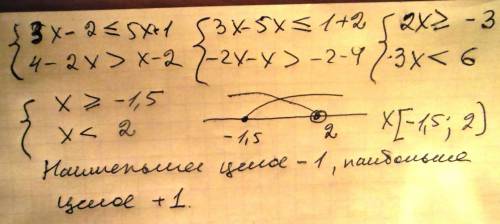 { 3x-2 ≤ 5x+1 { 3x-5x ≤ 1+2 { 2x ≥ -3
4-2x > x-2 -2x-x > -2-4 ·3x < 6
{ x ≥ -1,5
x < 2 -1,5 2 x[-1,5; 2)
Наименьшее целое -1, наибольшее
целое +1.